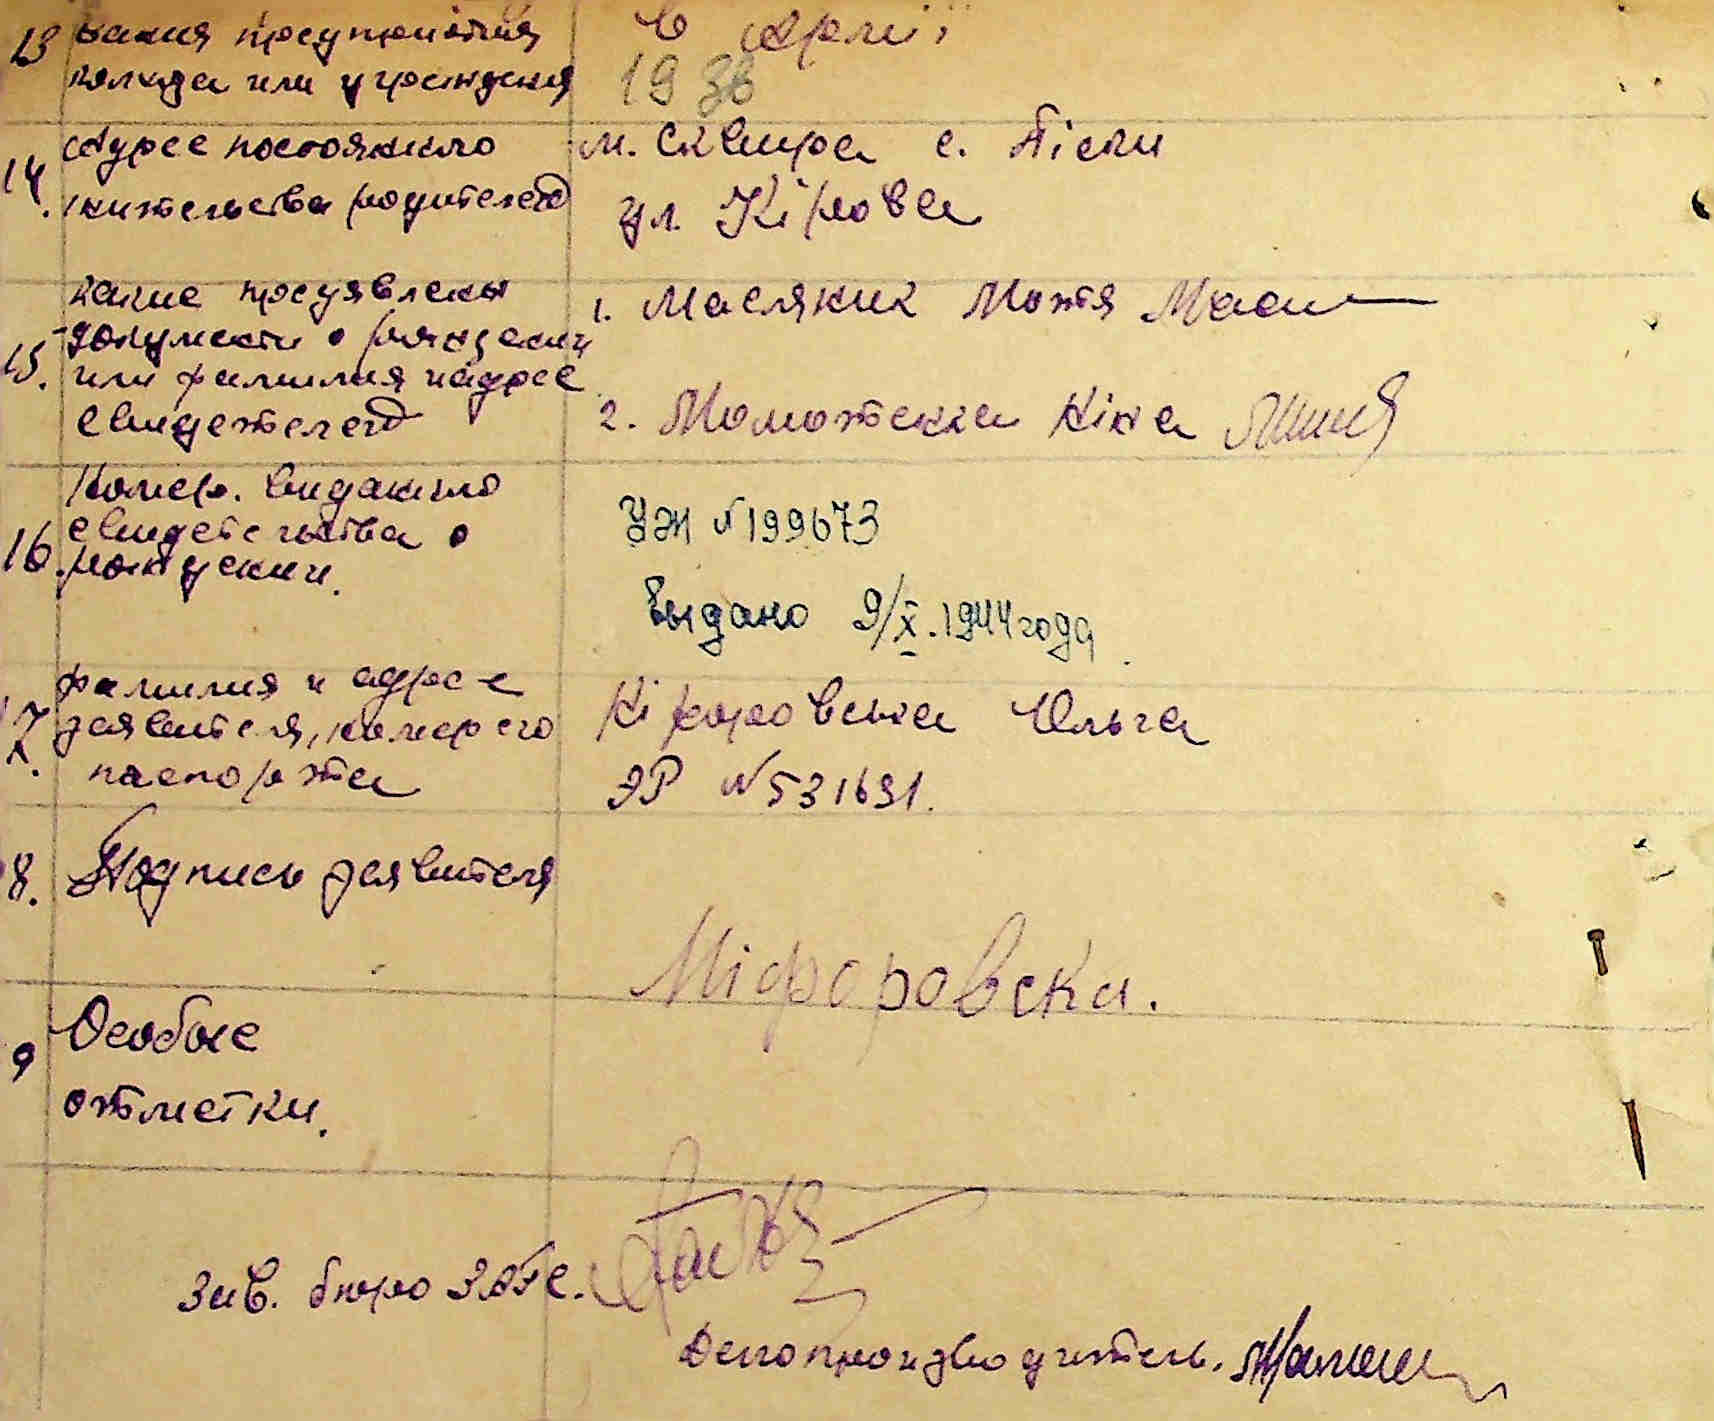 13 вания предприятия
колхоза или учреждения
в армії
1938
14. Адрес постоянного
жительства родителей
м. Сквира с. Піски
ул. Кірова
15. какие предъявлены
документи о рождении
или фамилия и адрес
свидетелей
1. Масляник Мотя
2. Момотенка Ніна
16. Номер. виданого
свидетельства о
рождении.
УЖ №199673
Выдано 9/X.1944 года
17. фамилия и адрес
заявителя, номер его
паспорта
Ольга
ЭР №531631.
8. Подпись заявителя
Нікфоровска.
9 Особые
отметки.
Зав. бюро ЗАГС.
Делопроизводитель.